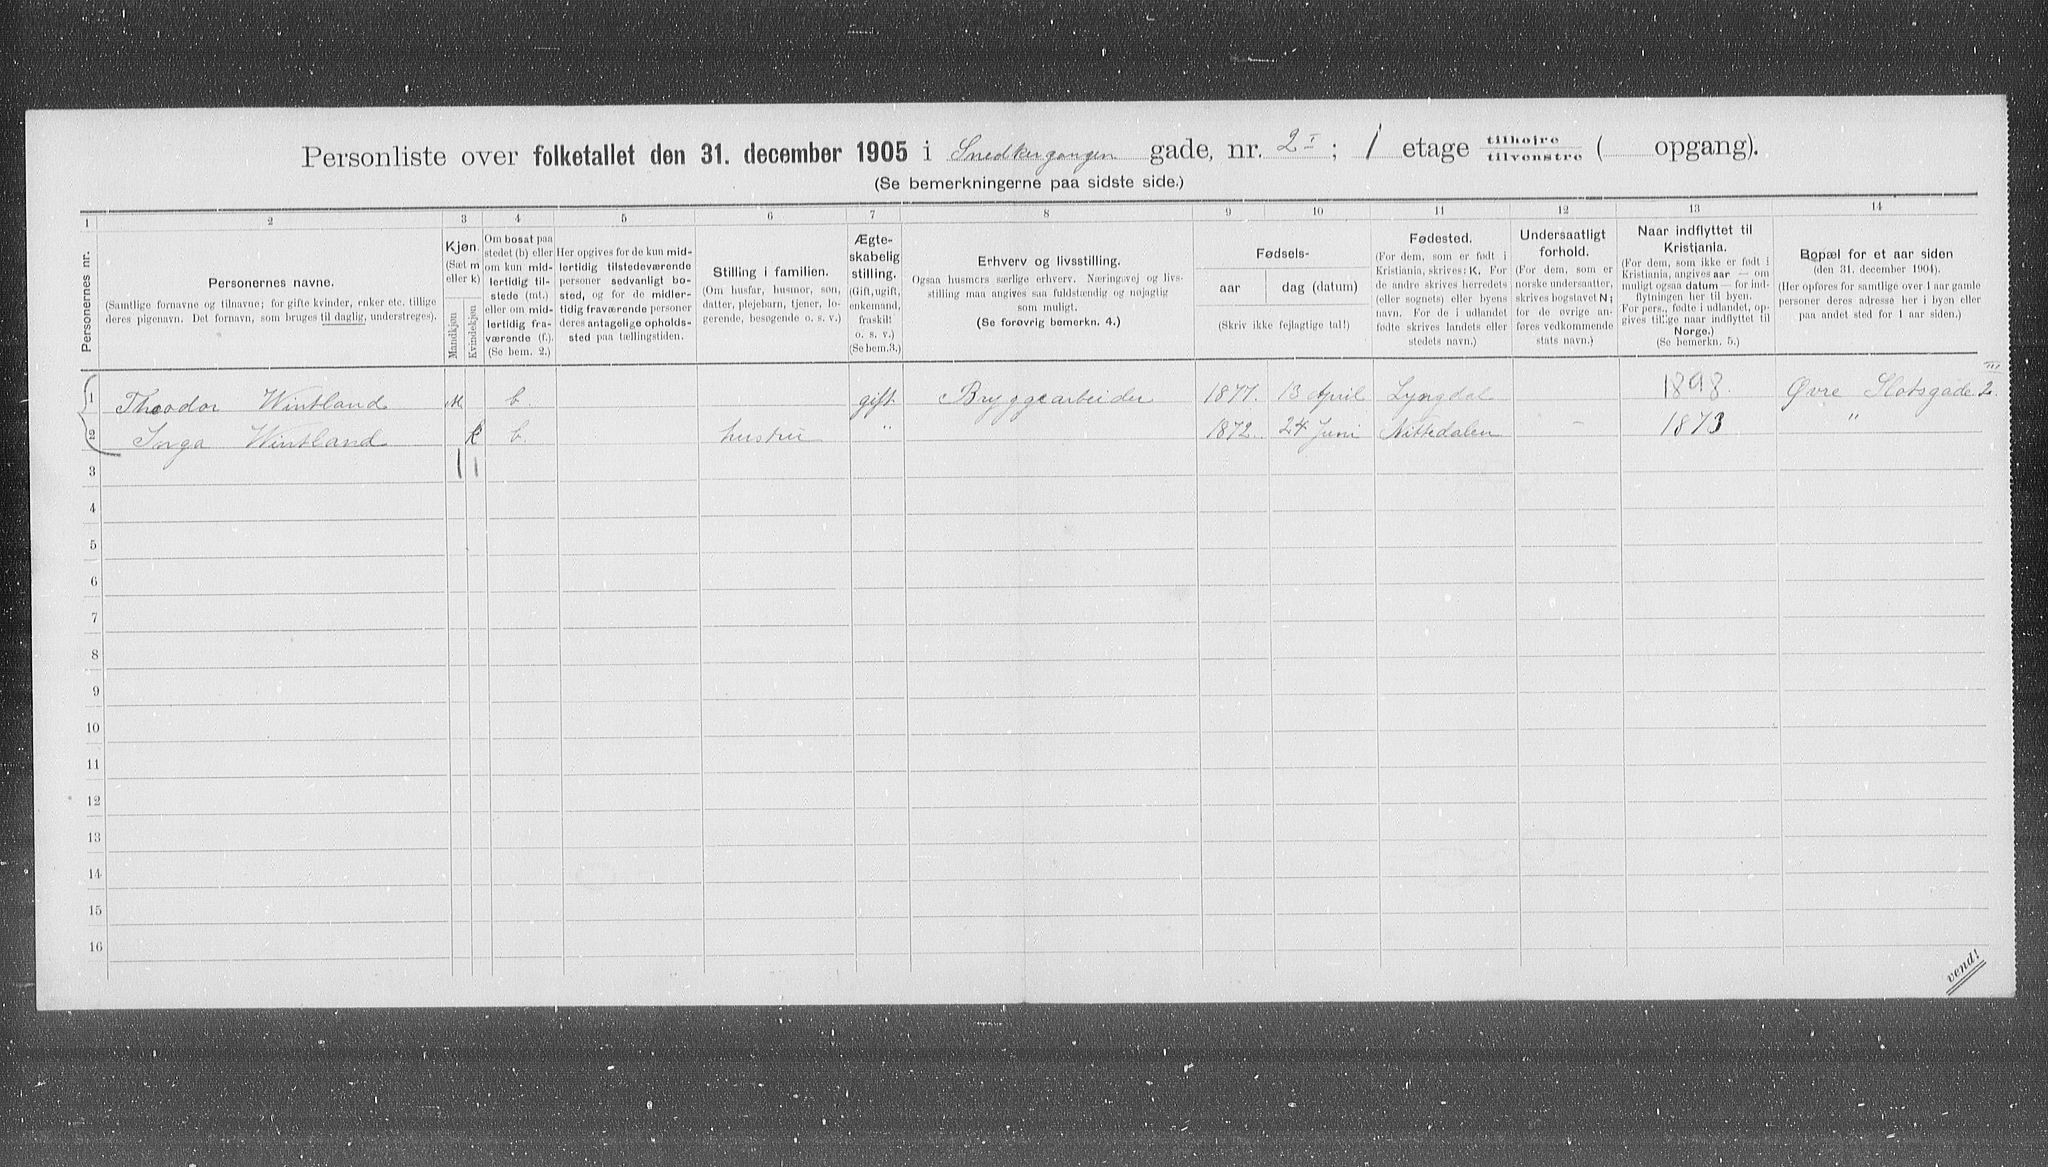 Personliste over folketallet den 31. december 1905 i Snedkergangen gade, nr. 2 I ; 1 etage tilhøjre / tilvenstre ( opgang).
(Se bemerkningerne paa sidste side.)
1 2 3 4 5 6 7 8 9 10 11 12 13 14
Personernes nr.
Personernes navne.
(Samtlige fornavne og tilnavne; for gifte kvinder, enker etc. tillige
deres pigenavn. Det fornavn, som bruges til daglig, understreges).
Kjøn.
(Sæt m
eller k)
Mandkjøn
Kvindekjøn
Om bosat paa
stedet (b) eller
om kun mid-
lertidig til-
stede (mt.)
eller om mid-
lertidig fra-
værende (f.).
(Se bem. 2.)
Her opgives for de kun mid-
lertidig tilstedeværende
personer sedvanligt bo-
sted, og for de midler-
tidig fraværende personer
deres antagelige opholds-
sted paa tællingstiden.
Stilling i familien.
(Om husfar, husmor, søn,
datter, plejebarn, tjener, lo-
gerende, besøgende o. s. v.)
Ægte-
skabelig
stilling.
(Gift, ugift,
enkemand,
fraskilt
o. s. v.)
(Se bem. 3.)
Erhverv og livsstilling.
Ogsaa husmors særlige erhverv. Næringsvej og livs-
stilling maa angives saa fuldstændig og nøjagtig
som muligt.
(Se forøvrig bemerkn. 4.)
Fødsels-
aar dag (datum)
(Skriv ikke fejlagtige tal!)
Fødested.
(For dem, som er født i
Kristiania, skrives: K. For
de andre skrives herredets
(eller sognets) eller byens
navn. For de i udlandet
fødte skrives landets eller
stedets navn.)
Undersaatligt
forhold.
(For dem, som er
norske undersaatter,
skrives bogstavet N;
for de øvrige an-
føres vedkommende
stats navn.)
Naar indflyttet til
Kristiania.
(For dem, som ikke er født i
Kristiania, angives aar — om
muligt ogsaa datum — for ind-
flytningen her til byen.
For pers., fødte i udlandet, op-
gives tillige naar indflyttet til
Norge.)
(Se bemerkn. 5.)
Bopæl for et aar siden
(den 31. december 1904).
(Her opføres for samtlige over 1 aar gamle
personer deres adresse her i byen eller
paa andet sted for 1 aar siden.)
1 Theodor Wintland m b. gift. Bryggearbeider 1877. 13 April Lyngdal 1898. Øvre Slotsgade 2 III.
2 Inga Wintland k b. hustru " 1872. 24 Juni Nittedalen - 1873 "
3 1 1
4
5
6
7
8
9
10
11
12
13
14
15
16
vend!